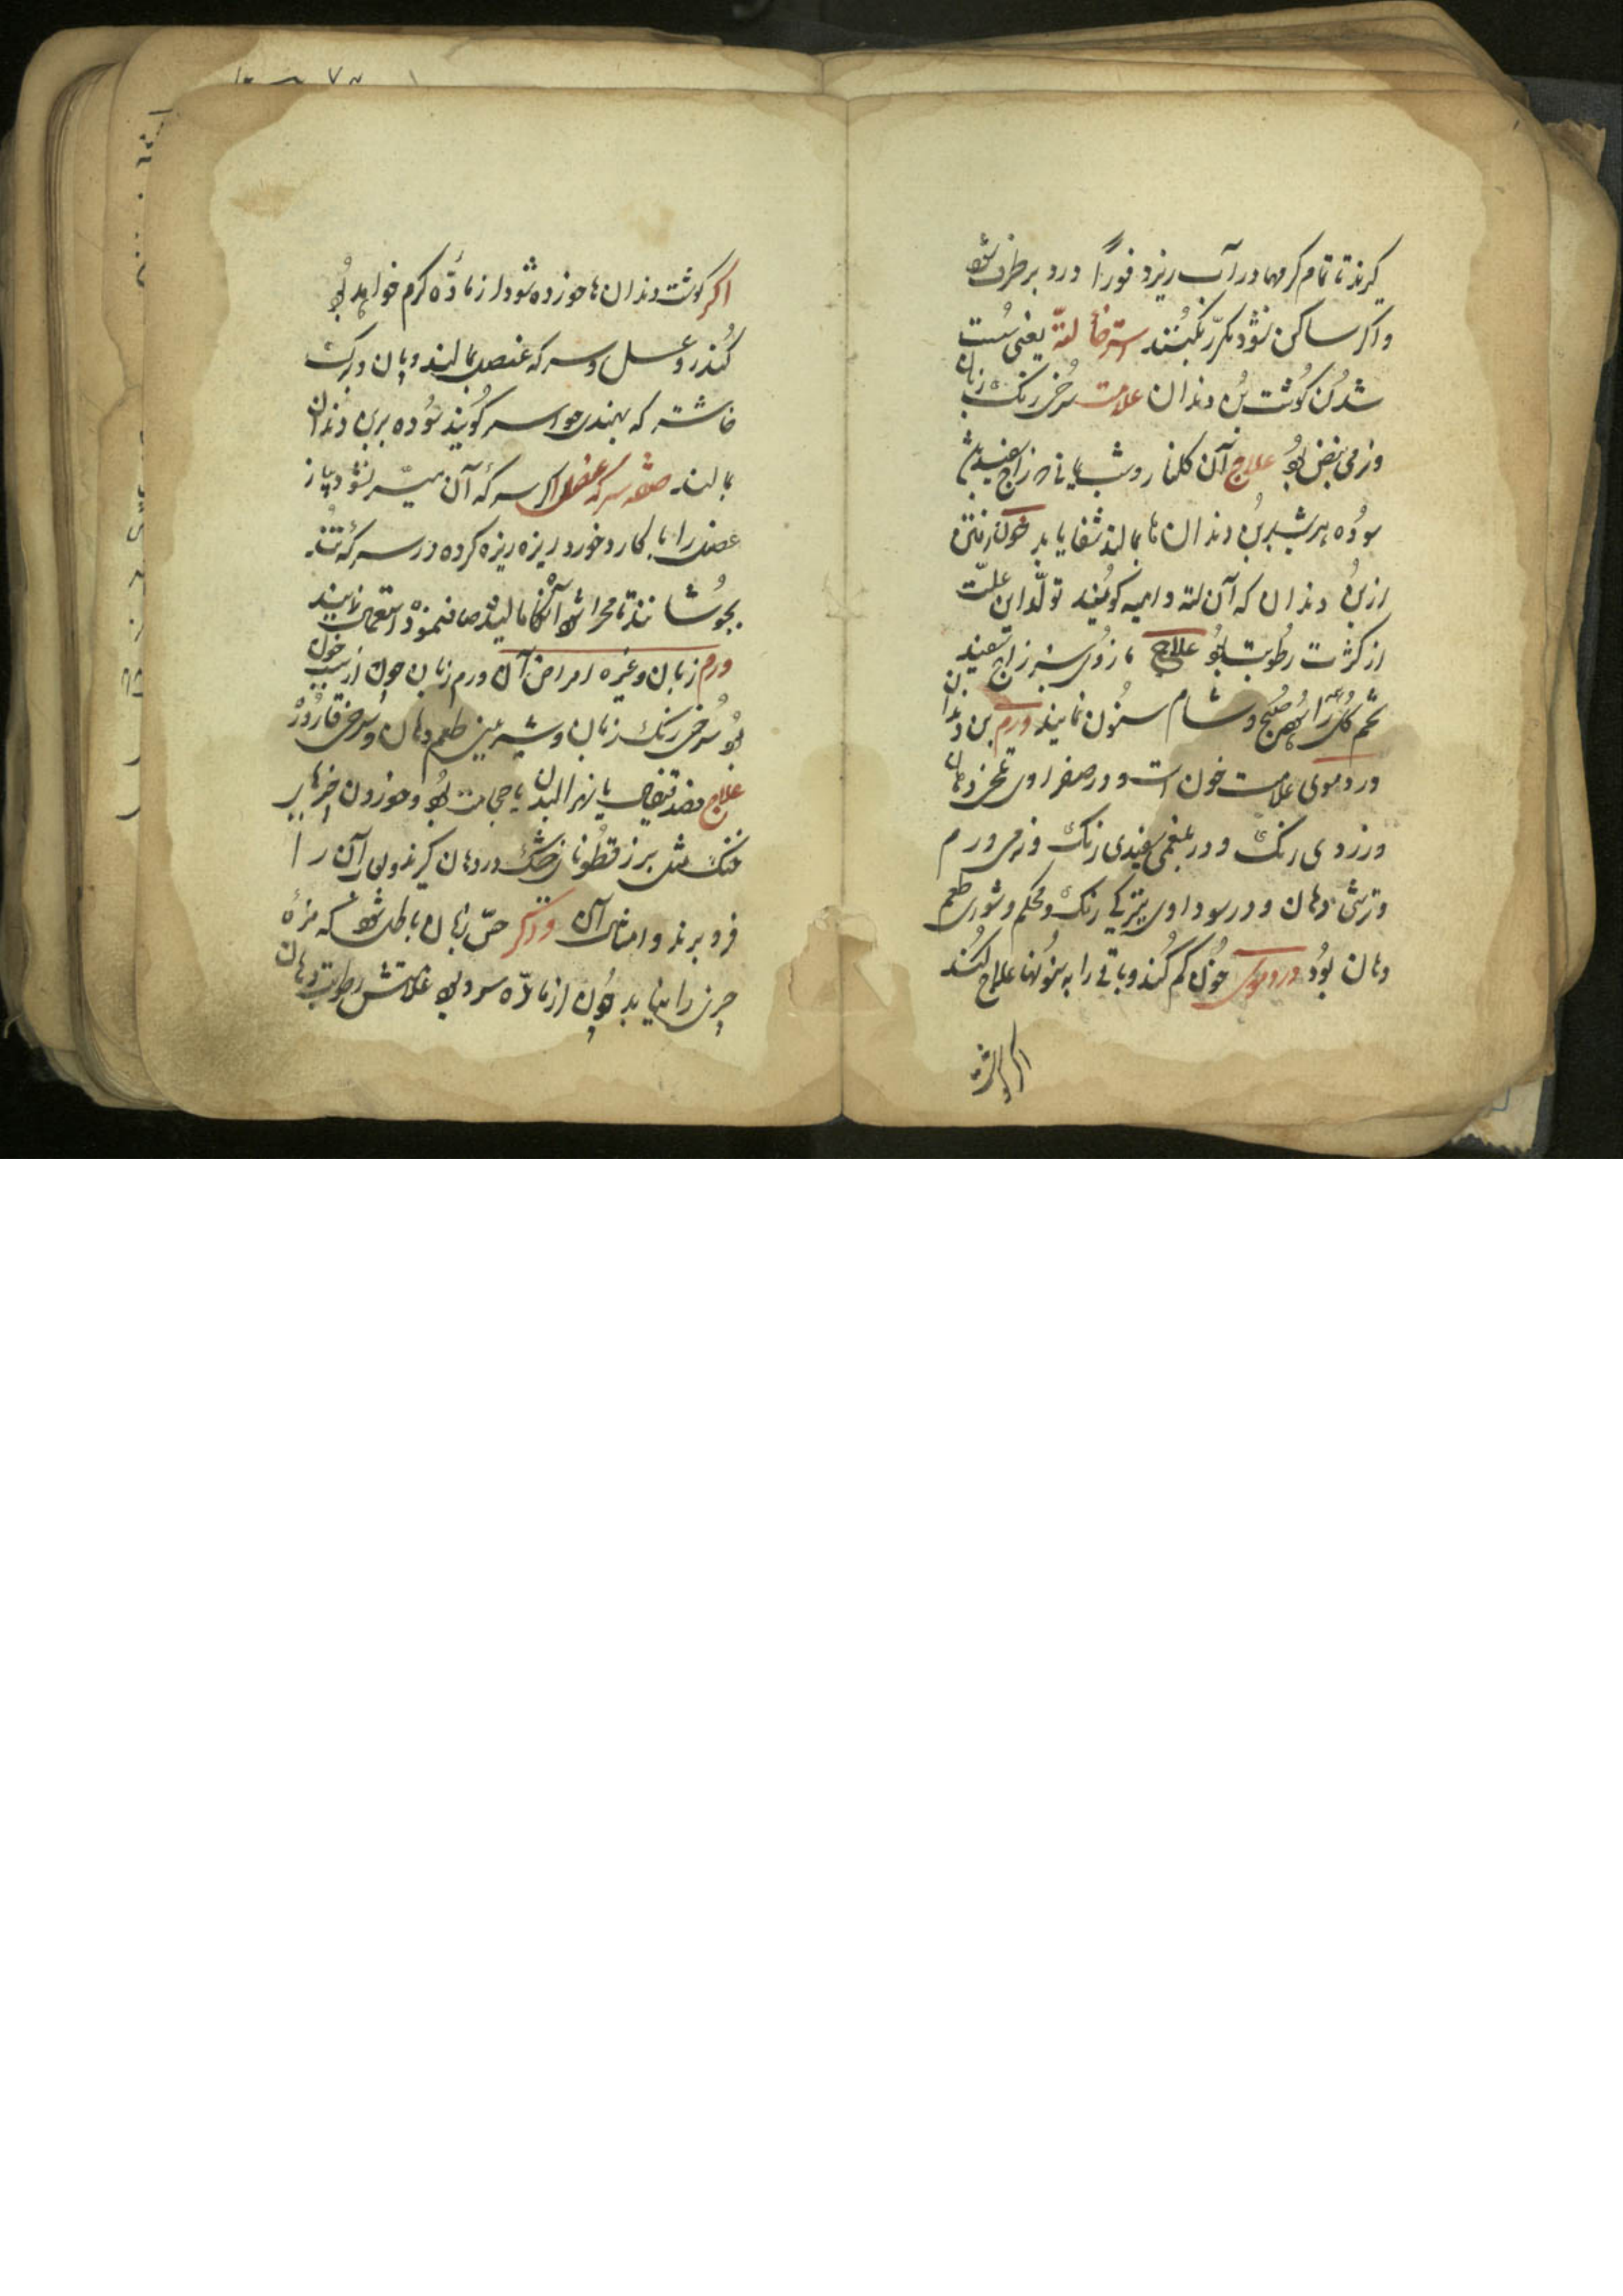 گیرند تا تمام کرمها در آب ریزد فوراً درد برطرف شود
واکر ساکن نشود مکرّر بکنند استرخاء لثه یعنی سست
شدن کوشت بن دندان علامت سرخی رنک زبان
ونرمی نبض بود علاج آن کلنار وشب یمانی زاج سفید
سوده هر شب بر بن دندان ها بمالند شفا یابد خون رفتن
از بن دندان که آن لثه دامیه کویند تولّد این علّت
از کثرت رطوبت بود علاج مازوی سبز زاج سفید
تخم کل را صبح وشام سنون نمایند ورم بن دندان
در دموی علامت خون است ودر صفراوی تلخی دهان
وزردی رنک ودر بلغمی سفیدی رنک ونرمی ورم
وترشی دهان ودر سوداوی تیرکی رنک ومحکم وشوری طعم
دهان بود در دموی خون کم کنند وباقی را به سنونها علاج کنند
اکر کوشت
اکر کوشت دندان ها خورده شود از مادّه کرم خواهد بود
کندر وعسل وسرکه عنصل بمالند وپان وبرک
که بهندی جواسه کویند سوده بر بن دندان
بمالند صفة سرکه عنصل اکر سرکهٔ آن میسّر نشود پیاز
عنصل را با کارد خورد ریزه ریزه کرده در سرکهٔ تند
بجوشانند تا مهرا شود آنکاه مالیده صاف نموده استعمال نمایند
ورم زبان وغیره امراض آن ورم زبان چون از سبب خون
بود سرخی رنک زبان وشیرینی طعم دهان وسرخی قاروره
علاج فصد قیفال یا حجامت بود وخوردن چیزهای
خنک مثل بزر قطونا در دهان کیرند ولعاب آن را
فرو برند وامثال آن ودیکر حسّ زبان باطل شود که مزهٔ
چیزی را نیابد چون از مادّه سرد بود علامتش رطوبت دهان